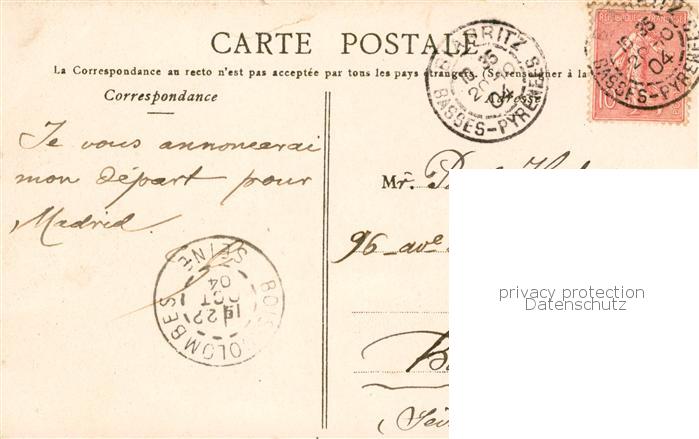 CARTE POSTALE
La Correspondance au recto n'est pas acceptée par tous les pays étrangers. (Se renseigner à la
Correspondance
Adresse
Je vous annoncerai
mon départ pour
Madrid
Mr.
96 - ave
BIARRITZ
BASSES-PYRENEES
20
04
BIARRITZ
BASSES-PYRENEES
20
04
10
BOIS COLOMBES
SEINE
22
OCT
04
privacy protection
Datenschutz